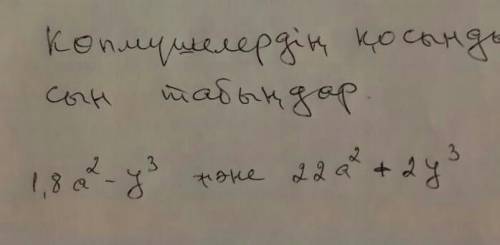 Көпмүшелердің қосынды
сын табыңдар.
1,8a² - y³ және 22a² + 2y³